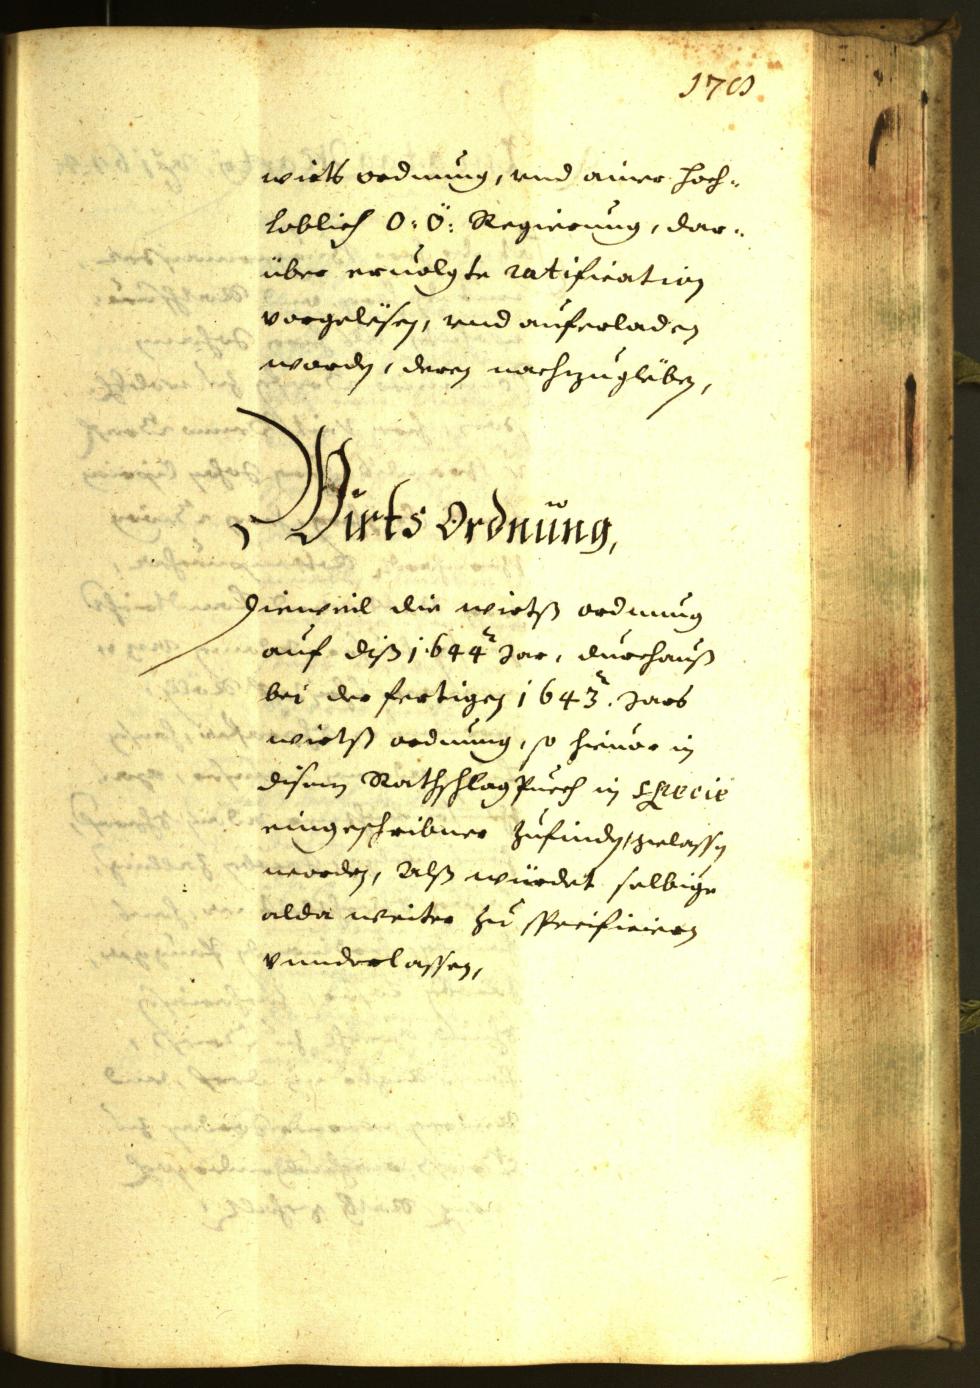 wirts ordnung, vnd ainer hoch„
loblich O: Ö: Regierung, dar„
über eruolgte ratification
vorgelësen, vnd auferladen
worden, deren nachzugläben,
Wirts Ordnung,
Dieweil die wirtß ordnung
auf diß 1644 Jar, durchauß
bei der fertigen 1643. Jars
wirtß ordnung, so hieuor in
disem Rathschlag Puech in specie
eingeschribner zufinden, gelassen
worden, Alß würdet selbige
alda weiter zu specificiern
vnnderlassen,